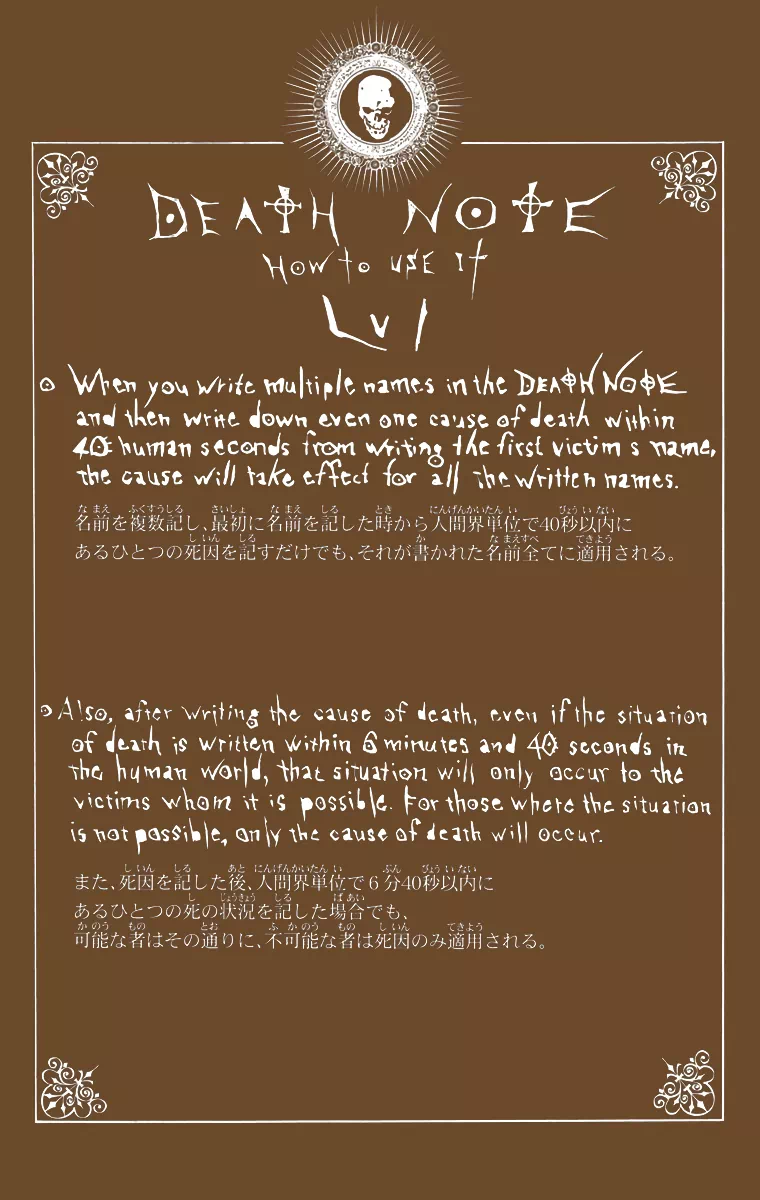 DEATH NOTE
HOW to USE It
LVI
When you write multiple names in the DEATH NOTE
and then write down even one cause of death within
40 human seconds from writing the first victim s name,
the cause will take effect for all the written names.
名前を複数記し、最初に名前を記した時から人間界単位で40秒以内に
あるひとつの死因を記すだけでも、それが書かれた名前全てに適用される。
Also, after writing the cause of death, even if the situation
of death is written within 6 minutes and 40 seconds in
the human world, that situation will only occur to the
victims whom it is possible. For those where the situation
is not possible, only the cause of death will occur.
また、死因を記した後、人間界単位で6分40秒以内に
あるひとつの死の状況を記した場合でも、
可能な者はその通りに、不可能な者は死因のみ適用される。